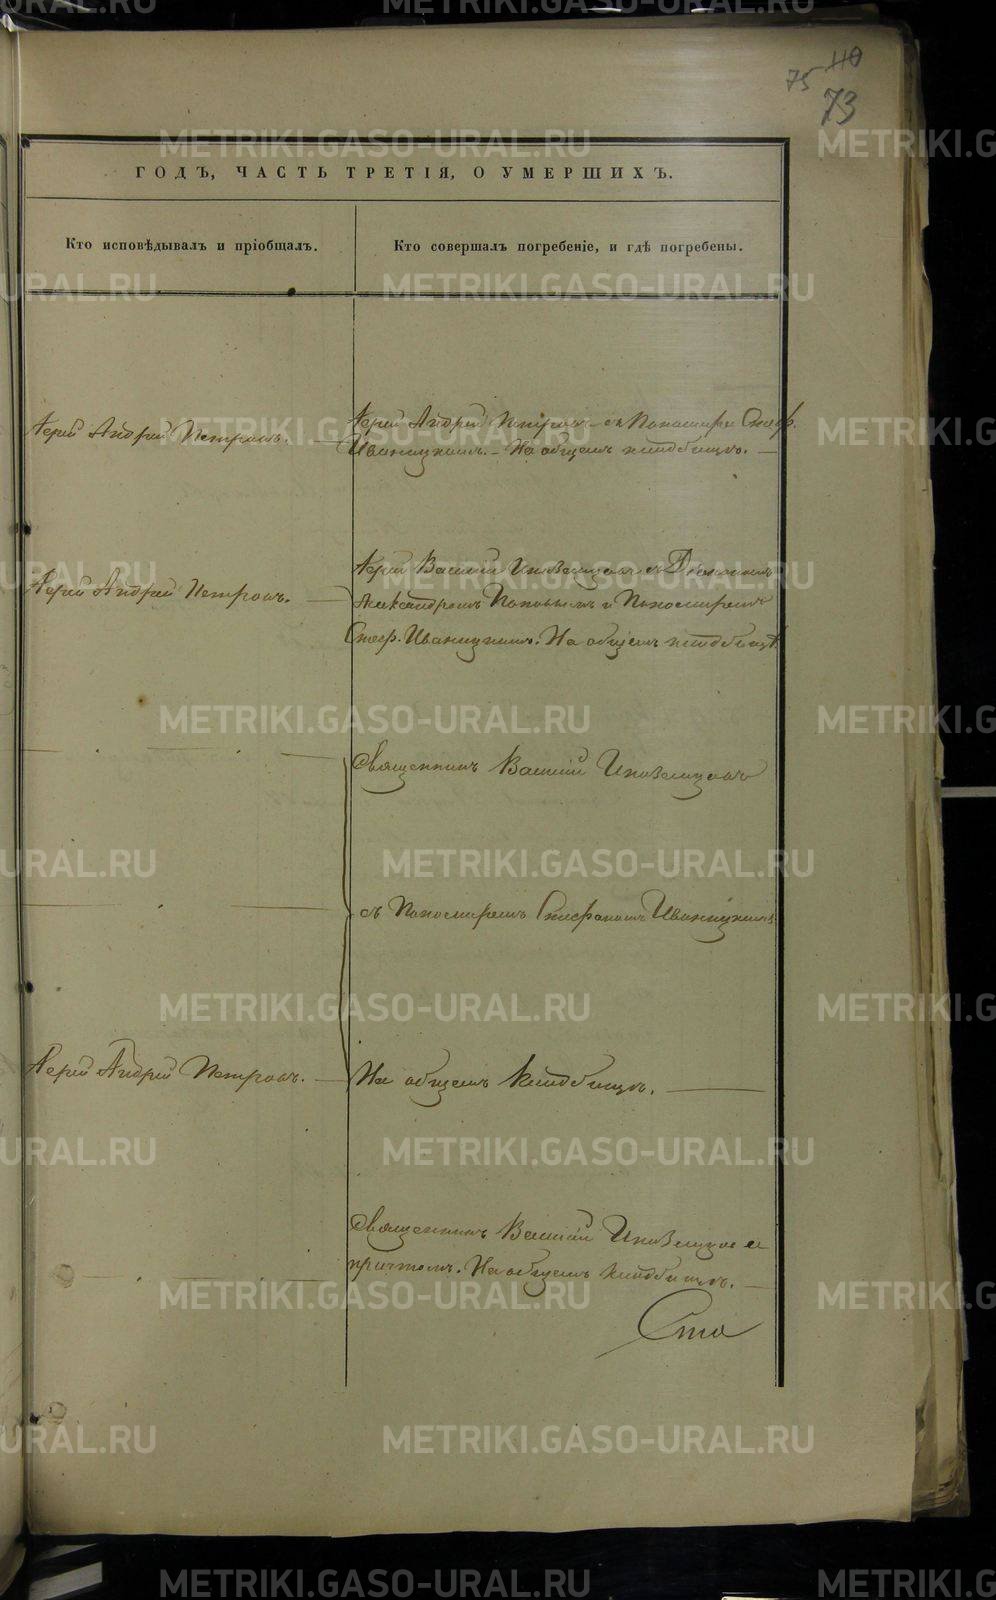 75 110
73
ГОДЪ, ЧАСТЬ ТРЕТІЯ, О УМЕРШИХЪ.
Кто исповѣдывалъ и пріобщалъ.
Кто совершалъ погребеніе, и гдѣ погребены.
Іерей Андрей Петровъ.
Іерей Андрей Петровъ съ Пономаремъ Стеф.
Иваницкимъ. – На общемъ кладбищѣ.
Іерей Андрей Петровъ.
Іерей Василій Словцовъ съ Діакономъ
Александромъ Поповымъ и Пономаремъ
Стеф. Иваницкимъ. На общемъ кладбищѣ
Священникъ Василій
съ Пономаремъ Стефаномъ Иваницкимъ.
Іерей Андрей Петровъ.
На общемъ кладбищѣ.
Священникъ Василій
причтомъ. На общемъ кладбищѣ.
Сто
METRIKI.GASO-URAL.RU